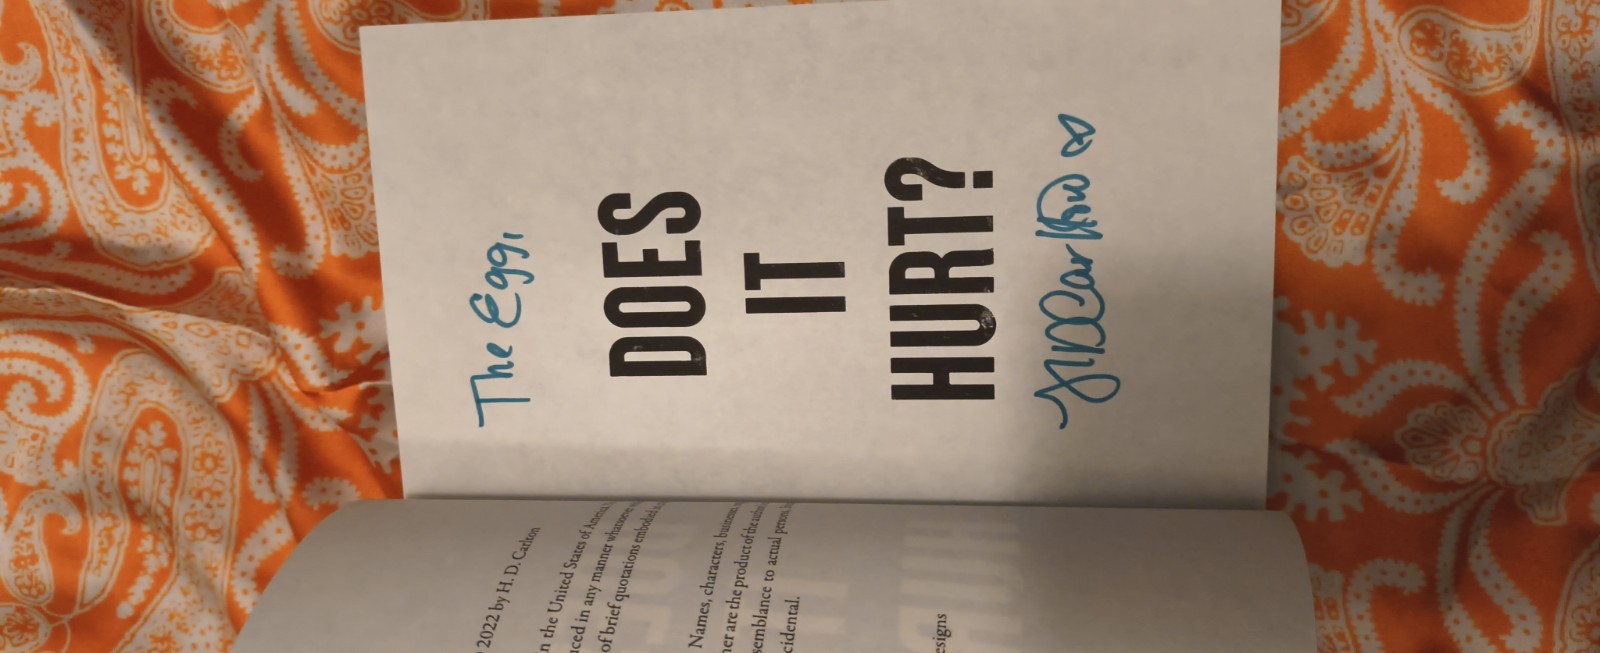 The Egg,
DOES
IT
HURT?
HD Carlton
2022 by H. D. Carlton
in the United States of America
uced in any manner whatsoever
of brief quotations embodied
Names, characters, business
ner are the product of the
semblance to actual persons,
cidental.
esigns